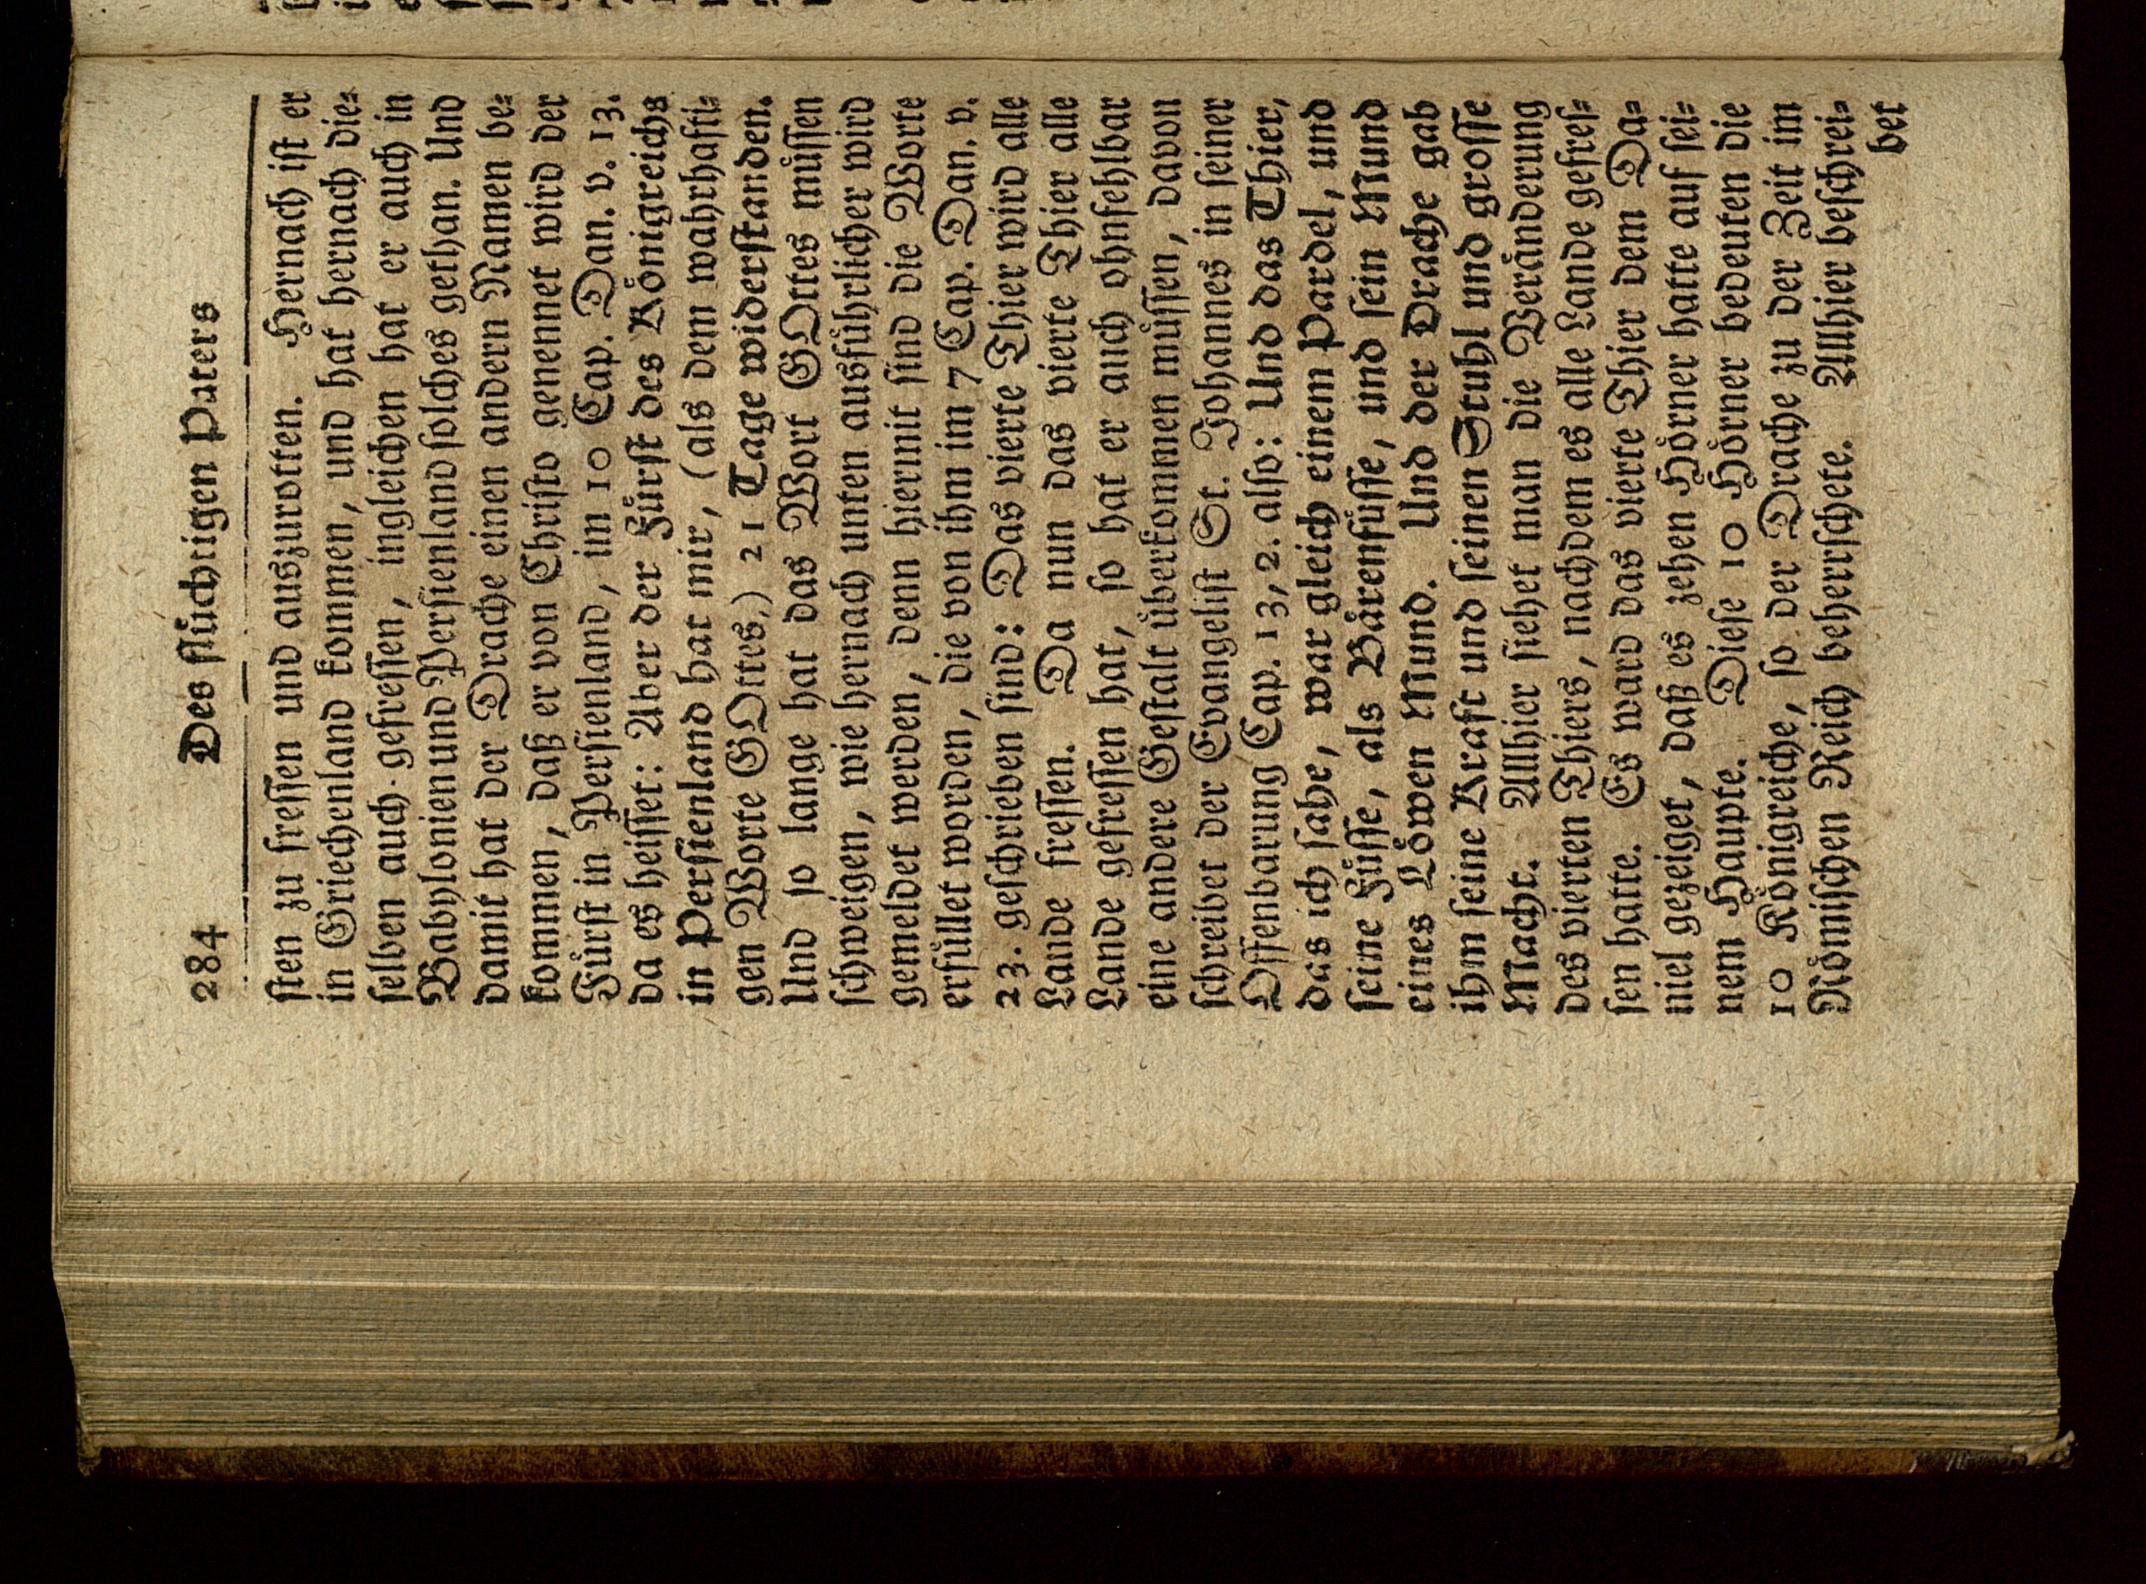 284 Des flüchtigen Paters
sten zu fressen und auszurotten. Hernach ist er
in Griechenland kommen, und hat hernach die-
selben auch gefressen, ingleichen hat er auch in
Babylonien und Persienland solches gethan. Und
damit hat der Drache einen andern Namen be-
kommen, daß er von Christo genennet wird der
Fürst in Persienland, im 10 Cap. Dan. v. 13.
da es heisset: Aber der Fürst des Königreichs
in Persienland hat mir, (als dem wahrhafti-
gen Worte GOttes,) 21 Tage widerstanden.
Und so lange hat das Wort GOttes müssen
schweigen, wie hernach unten ausführlicher wird
gemeldet werden, denn hiermit sind die Worte
erfüllet worden, die von ihm im 7 Cap. Dan. v.
23. geschrieben sind: Das vierte Thier wird alle
Lande fressen. Da nun das vierte Thier alle
Lande gefressen hat, so hat er auch ohnfehlbar
eine andere Gestalt überkommen müssen, davon
schreibet der Evangelist St. Johannes in seiner
Offenbarung Cap. 13, 2. also: Und das Thier,
das ich sahe, war gleich einem Pardel, und
seine Füsse, als Bärenfüsse, und sein Mund
eines Löwen Mund. Und der Drache gab
ihm seine Kraft und seinen Stuhl und grosse
Macht. Allhier siehet man die Veränderung
des vierten Thiers, nachdem es alle Lande gefres-
sen hatte. Es ward das vierte Thier dem Da-
niel gezeiget, daß es zehen Hörner hatte auf sei-
nem Haupte. Diese 10 Hörner bedeuten die
10 Königreiche, so der Drache zu der Zeit im
Römischen Reich beherrschete. Allhier beschrei-
bet